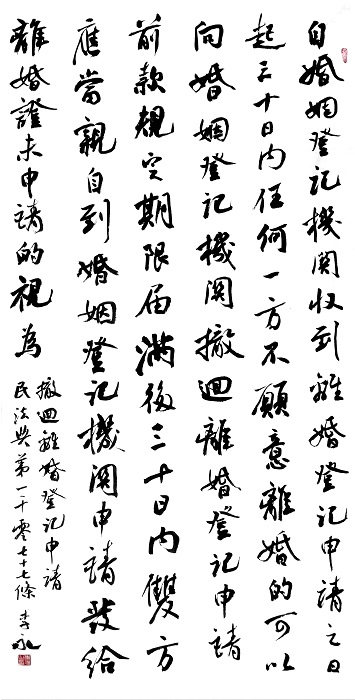 自婚姻登記機關收到離婚登記申請之日
起三十日内任何一方不願意離婚的可以
向婚姻登記機關撤迴離婚登記申請
前款規定期限届滿後三十日内雙方
應當親自到婚姻登記機關申請發給
離婚證未申請的視為
撤迴離婚登記申請
民法典第一千零七十七條 李永